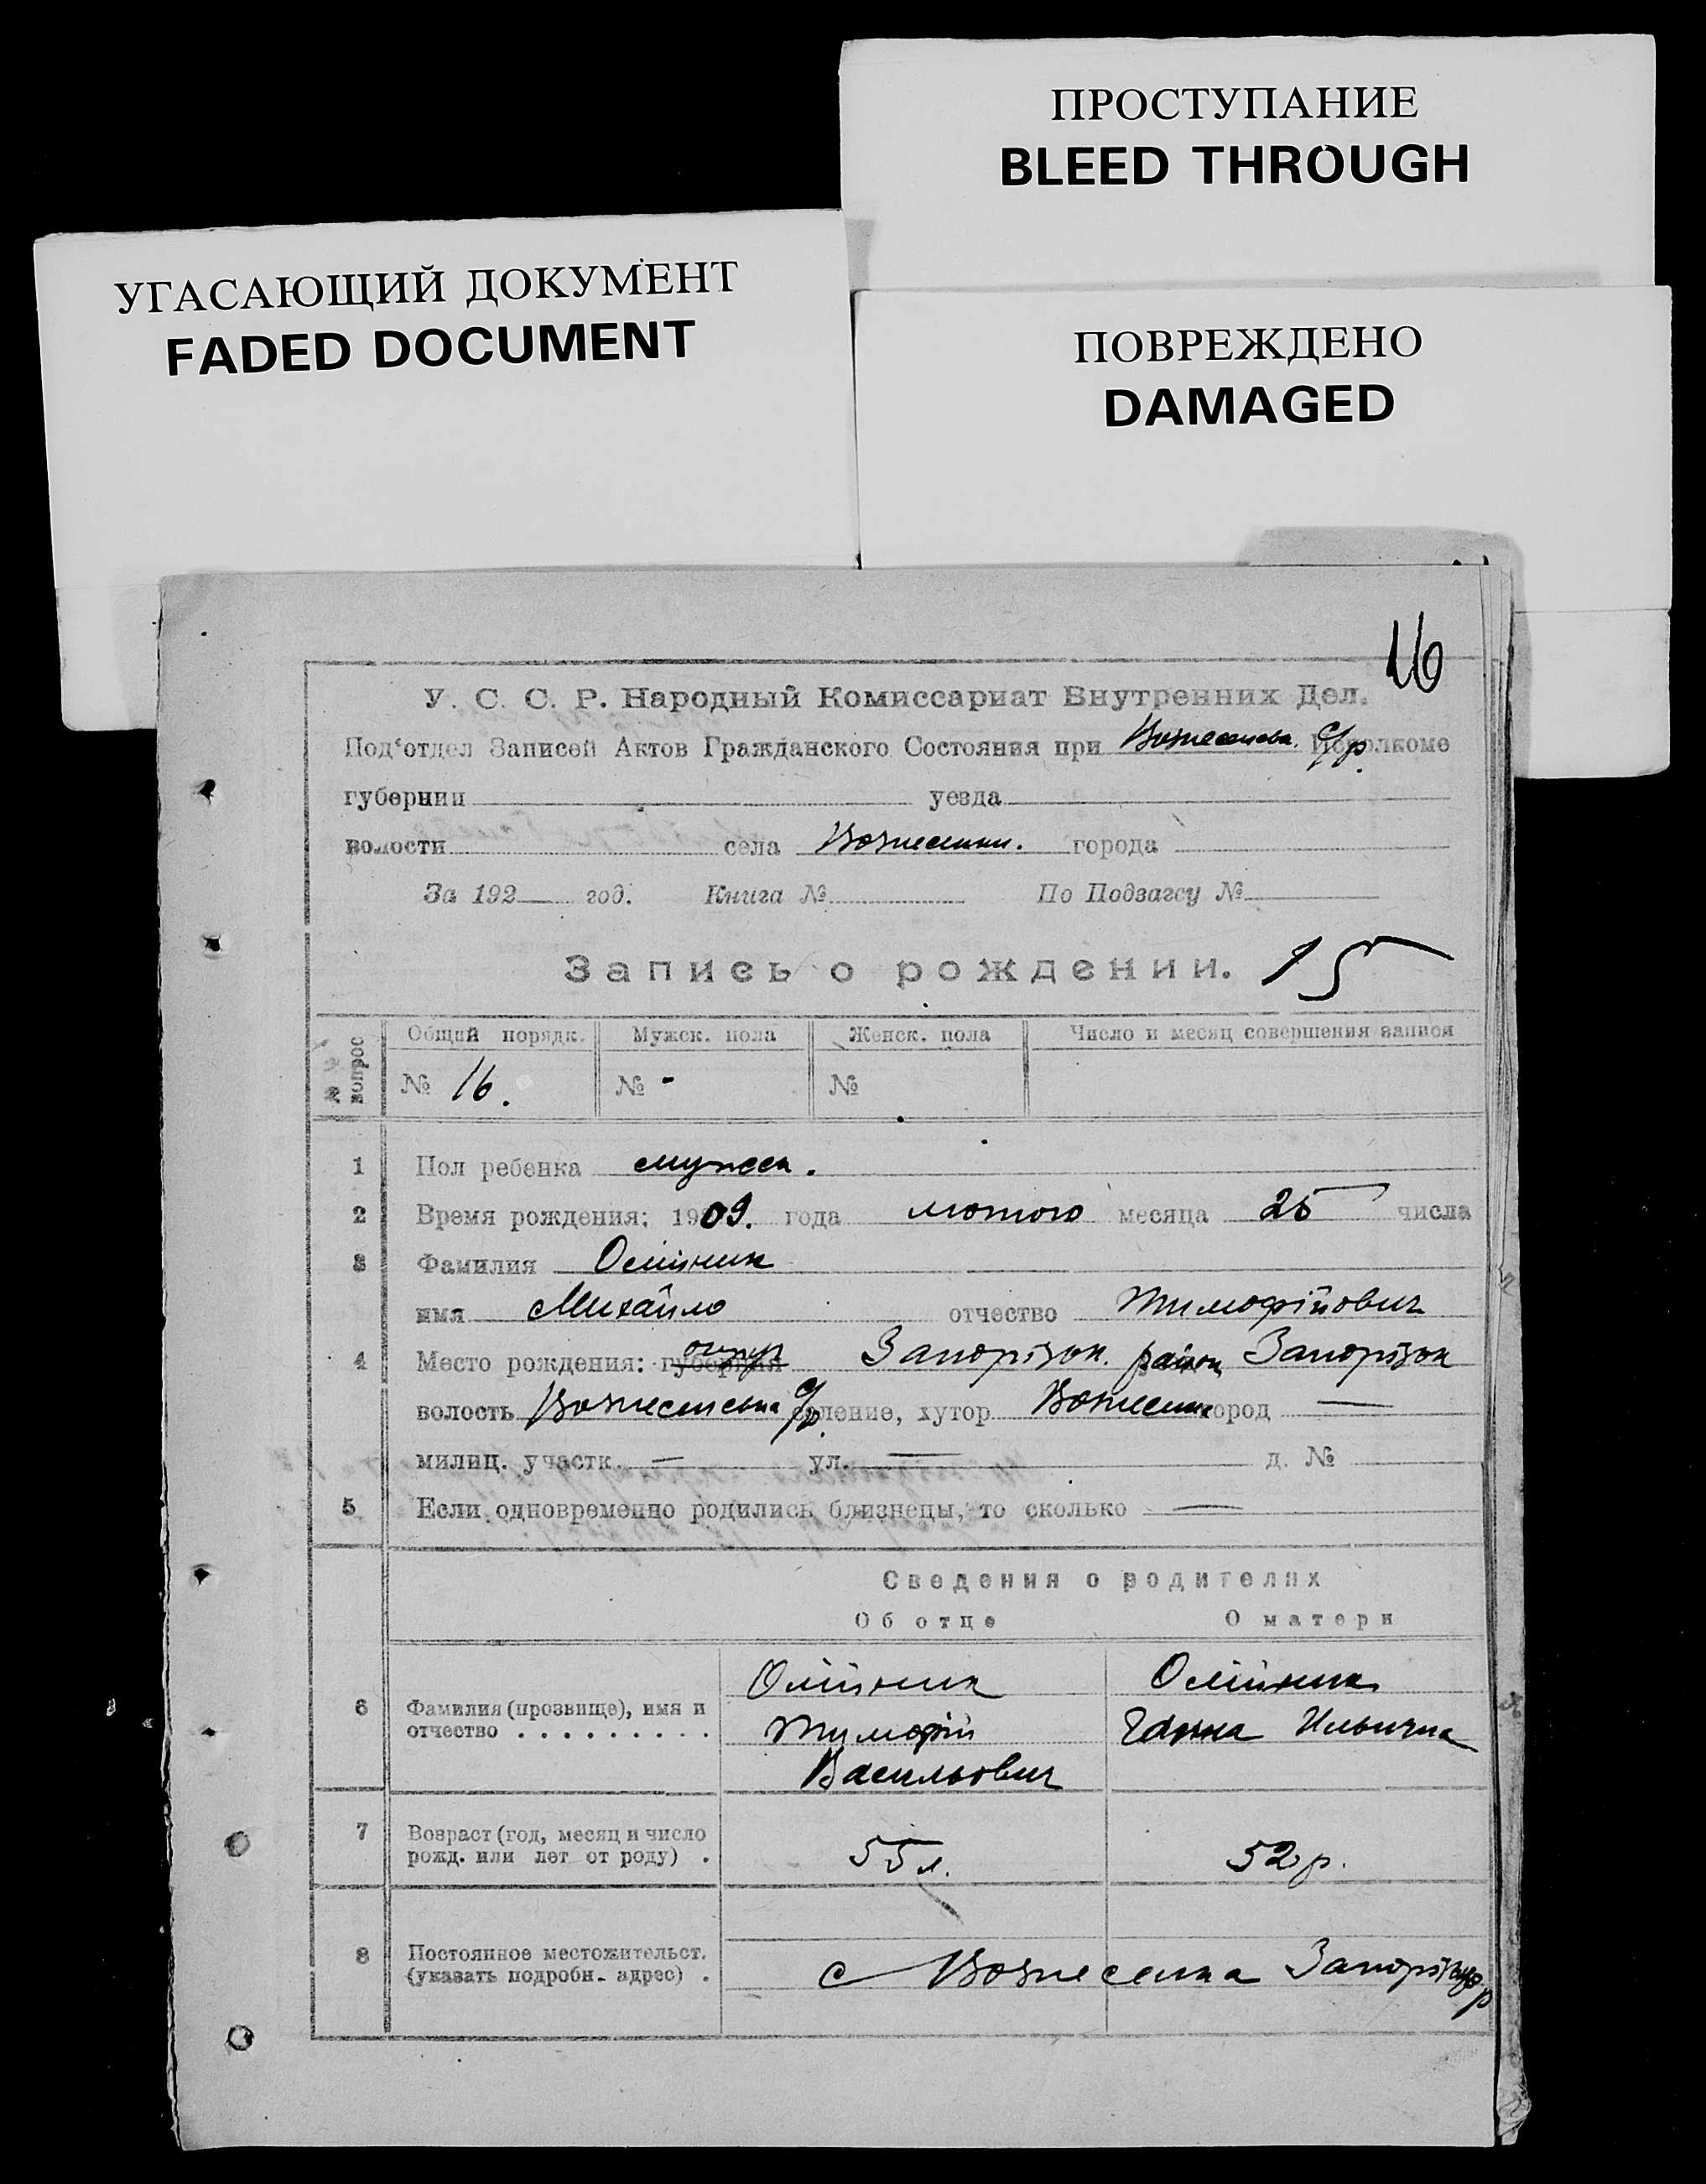 ПРОСТУПАНИЕ
BLEED THROUGH
УГАСАЮЩИЙ ДОКУМЕНТ
FADED DOCUMENT
ПОВРЕЖДЕНО
DAMAGED
16
У. С. С. Р. Народный Комиссариат Внутренних Дел.
Под'отдел Записей Актов Гражданского Состояния при Вознесенська с/р. Исполкоме
губернии уезда
волости села Вознесенки. города
За 192 год. Книга № По Подзагсу №
Запись о рождении. 15
№ вопрос Общий порядк. Мужск. пола Женск. пола Число и месяц совершения записи
№ 16. № - №
1 Пол ребенка мужеск.
2 Время рождения: 1909. года лютого месяца 25 числа
3 Фамилия Олійник
имя Михайло отчество Тимофійович
4 Место рождения: губерния округ Запорізьк. район Запорізьк
волость Вознесенська с/р. селение, хутор Вознесенка город —
милиц. участк. — ул. — д. №
5 Если одновременно родились близнецы, то сколько —
Сведения о родителях
Об отце О матери
6 Фамилия (прозвище), имя и отчество . . . . . . . . .
Олійник Олійник
Тимофій Ганна Ильична
Васильович
7 Возраст (год, месяц и число
рожд. или лет от роду) . 55 л. 52 р.
8 Постоянное местожительст.
(указать подробн. адрес) . с Вознесенка